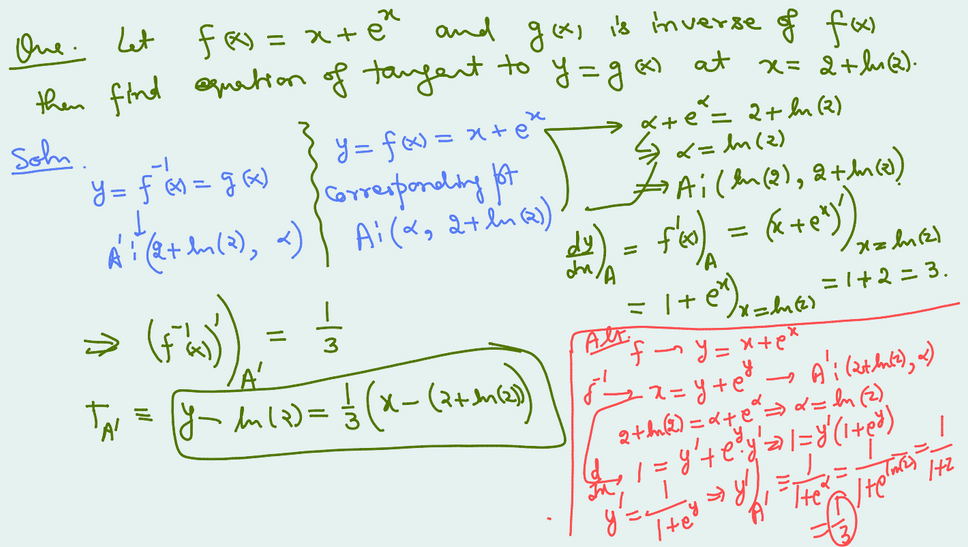 Que. Let f(x) = x + e^x and g(x) is inverse of f(x)
then find equation of tangent to y = g(x) at x = 2 + ln(2).
Soln.
y = f^{-1}(x) = g(x)
↓
A' : (2 + ln(2), α)
y = f(x) = x + e^x
corresponding pt
A : (α, 2 + ln(2))
→ α + e^α = 2 + ln(2)
⇒ α = ln(2)
⇒ A : (ln(2), 2 + ln(2))
dy/dx)_A = f'(x))_A = (x + e^x)')_{x = ln(2)}
= 1 + e^x)_{x = ln(2)} = 1 + 2 = 3.
⇒ (f^{-1}(x))')_{A'} = 1/3
T_{A'} ≡ y - ln(2) = 1/3 (x - (2 + ln(2)))
Alt.
f → y = x + e^x
f^{-1} → x = y + e^y → A' : (2 + ln(2), α)
2 + ln(2) = α + e^α ⇒ α = ln(2)
d/dx 1 = y' + e^y · y' ⇒ 1 = y'(1 + e^y)
y' = 1/(1 + e^y) ⇒ y')_{A'} = 1/(1 + e^α) = 1/(1 + e^{ln(2)}) = 1/(1 + 2)
= 1/3